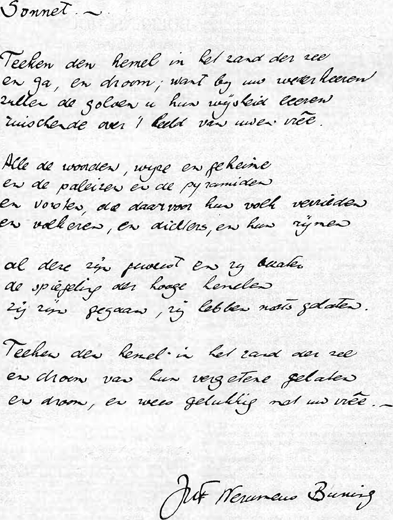 Sonnet.
Teeken den hemel in het zand der zee
en ga, en droom; want by uw wederkeeren
zullen de golven u hun wijsheid leeren
ruischende over 't beeld van uwen vrêe.
Alle de woorden, wyze en geheime
en de paleizen en de pyramiden
en vorsten, die daarvoor hun volk verrieden
en volkeren, en dichters, en hun rijmen
al deze zijn geweest en zy
de spiegeling der hooge hemelen
zij zijn gegaan, zij hebben niets gelaten.
Teeken den hemel in het zand der zee
en droom van hun vergetene gelaten
en droom, en wees gelukkig met uw vrêe.
JWF Werumeus Buning